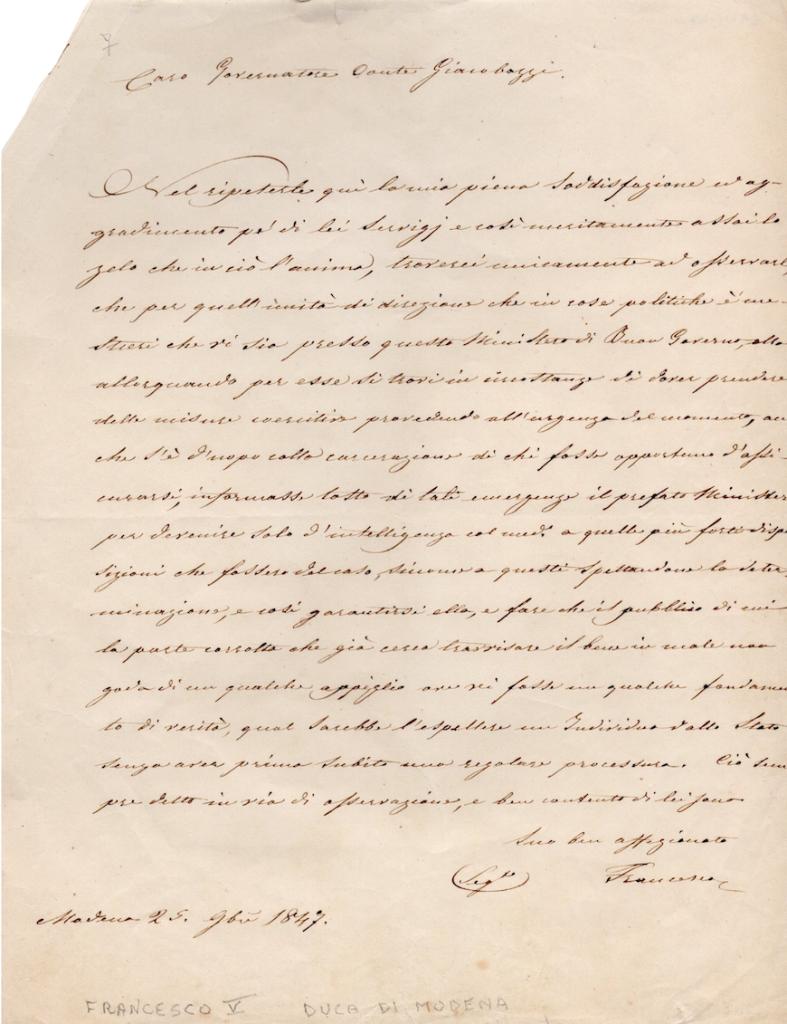 7
Caro Governatore Conte Giacobazzi.
Nel ripeterle quì la mia piena soddisfazione ed ag-
gradimento pe' di lei servigj e così meritamente assai lo
zelo che in ciò l'anima, troverei unicamente ad osservarle,
che per quell'unità di direzione che in cose politiche è me-
stieri che vi sia presso questo Ministero di Buon Governo, ella
allorquando per esse si trovi in circostanze di dover prendere
delle misure coercitive provedendo all'urgenza del momento, an
che s'è d'uopo colla carcerazione di chi fosse opportuno d'assi-
curarsi, informasse tosto di tali emergenze il prefato Minister
per devenire solo d'intelligenza col med.º a quelle più forti dispo
sizioni che fossero del caso, siccome a questi spettandone la deter
minazione, e così garantirsi ella, e fare che il pubblico di cui
la parte corrotta che già cerca travvisare il bene in male non
goda di un qualche appiglio ove vi fosse un qualche fondamen
to di verità, qual sarebbe l'espellere un Individuo dallo Stato
senza aver prima subito una regolare processura. Ciò sem
pre detto in via di osservazione, e ben contento di lei sono
Suo ben affezionato
(Seg.to) Francesco
Modena 25. 9bre 1847.
FRANCESCO V DUCA DI MODENA